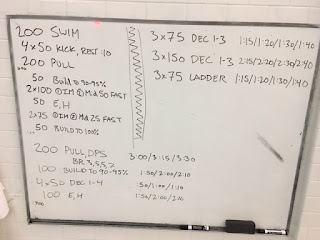 200 SWIM
4x50 KICK, REST :10
200 PULL
50 Build to 90-95%
2x100 ①IM ②Mid 50 FAST
50 E,H
2x75 ①IM ②Mid 25 FAST
50 BUILD TO 100%
200 PULL, DPS 3:00/3:15/3:30
BR 3,5,7
100 BUILD TO 90-95% 1:50/2:00/2:10
4x50 DEC 1-4 :50/1:00/1:10
100 E,H 1:50/2:00/2:10
3x75 DEC 1-3 1:15/1:20/1:30/1:40
3x150 DEC 1-3 2:15/2:20/2:30/2:40
3x75 LADDER 1:15/1:20/1:30/1:40